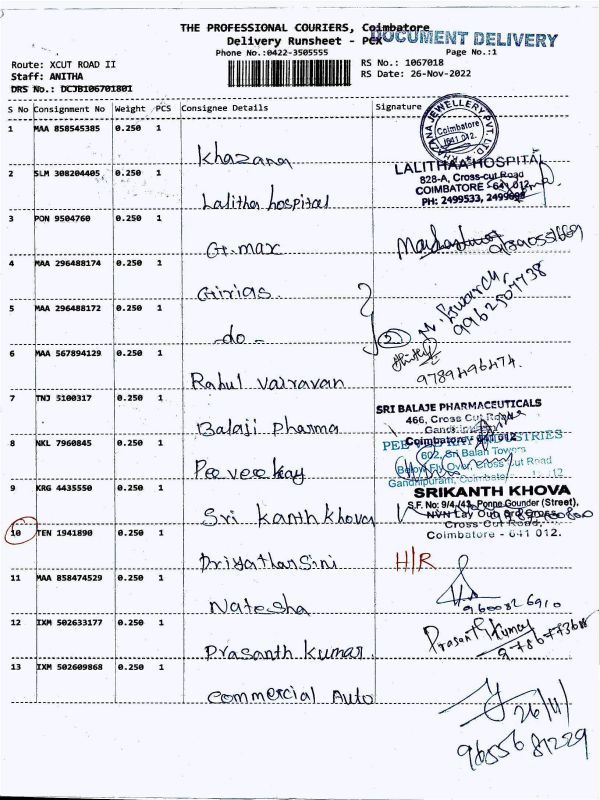 THE PROFESSIONAL COURIERS, Coimbatore
Delivery Runsheet - PCX
DOCUMENT DELIVERY
Phone No.:0422-3505555
Page No.:1
Route: XCUT ROAD II
RS No.: 1067018
Staff: ANITHA
RS Date: 26-Nov-2022
DRS No.: DCJB106701801
S No Consignment No Weight PCS Consignee Details Signature
1 MAA 858545385 0.250 1 Khazana
KHAZANA JEWELLERY PVT. LTD.
Coimbatore
641 012.
2 SLM 308204405 0.250 1 Lalitha hospital
LALITHAA HOSPITAL
828-A, Cross-cut Road
COIMBATORE - 641 012.
PH: 2499533,
3 PON 9504760 0.250 1 G.max
4 MAA 296488174 0.250 1 Girias
5 MAA 296488172 0.250 1 -do- 2
9962507738
6 MAA 567894129 0.250 1 Rahul Vairavan
9789496474.
7 TNJ 5100317 0.250 1 Balaji Pharma
SRI BALAJE PHARMACEUTICALS
466, Cross Cut Road
Coimbatore - 641 012
8 NKL 7960845 0.250 1 Peeveekay
PEE VEE KAY INDUSTRIES
602, Sri Balaji Towers
Below Fly Over, Cross Cut Road
Gandhipuram, Coimbatore
9 KRG 4435550 0.250 1 Sri Kanth Khova
SRIKANTH KHOVA
S.F. No: 9/4,/43, Ponne Gounder (Street),
NVN Lay Out 3rd Cross
Cross Cut Road,
Coimbatore - 641 012.
10 TEN 1941890 0.250 1 Driyatharsini H/R
11 MAA 858474529 0.250 1 Natesha
9600826910
12 IXM 502633177 0.250 1 Prasanth kumar
Prasanth Kumar
13 IXM 502609868 0.250 1 Commercial Auto
26/11/
9655681229